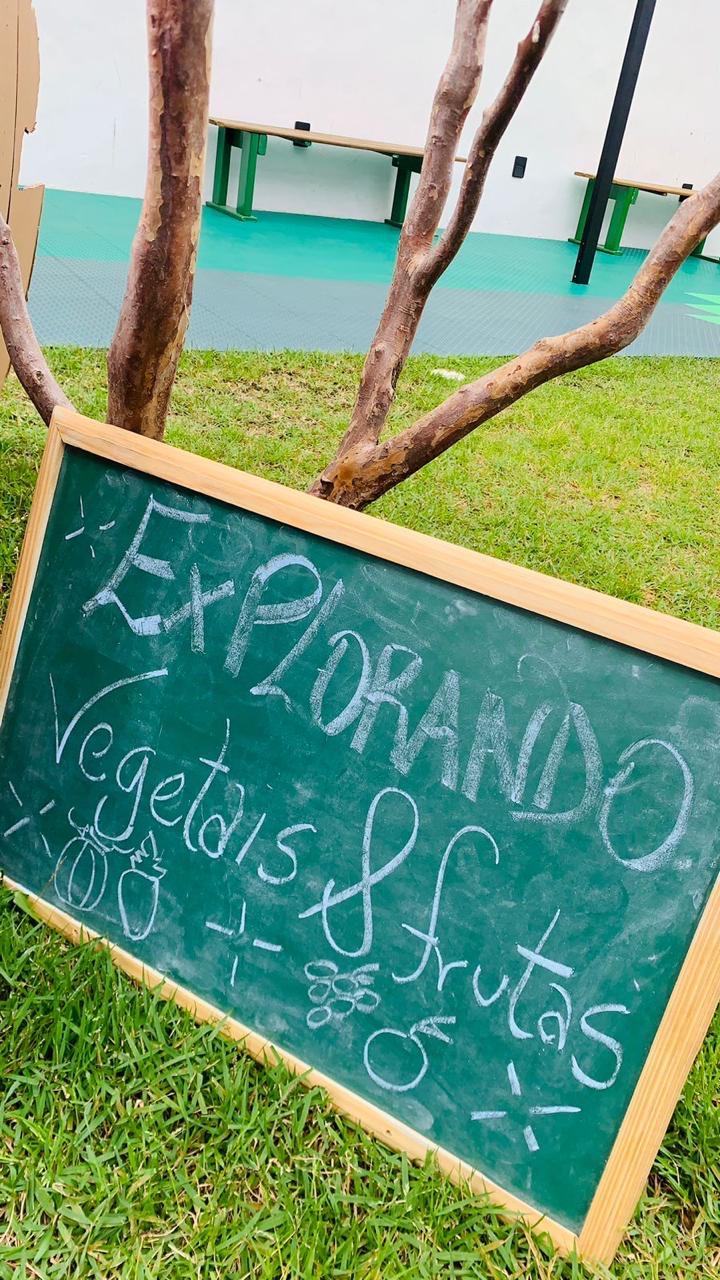 EXPLORANDO
Vegetais & frutas